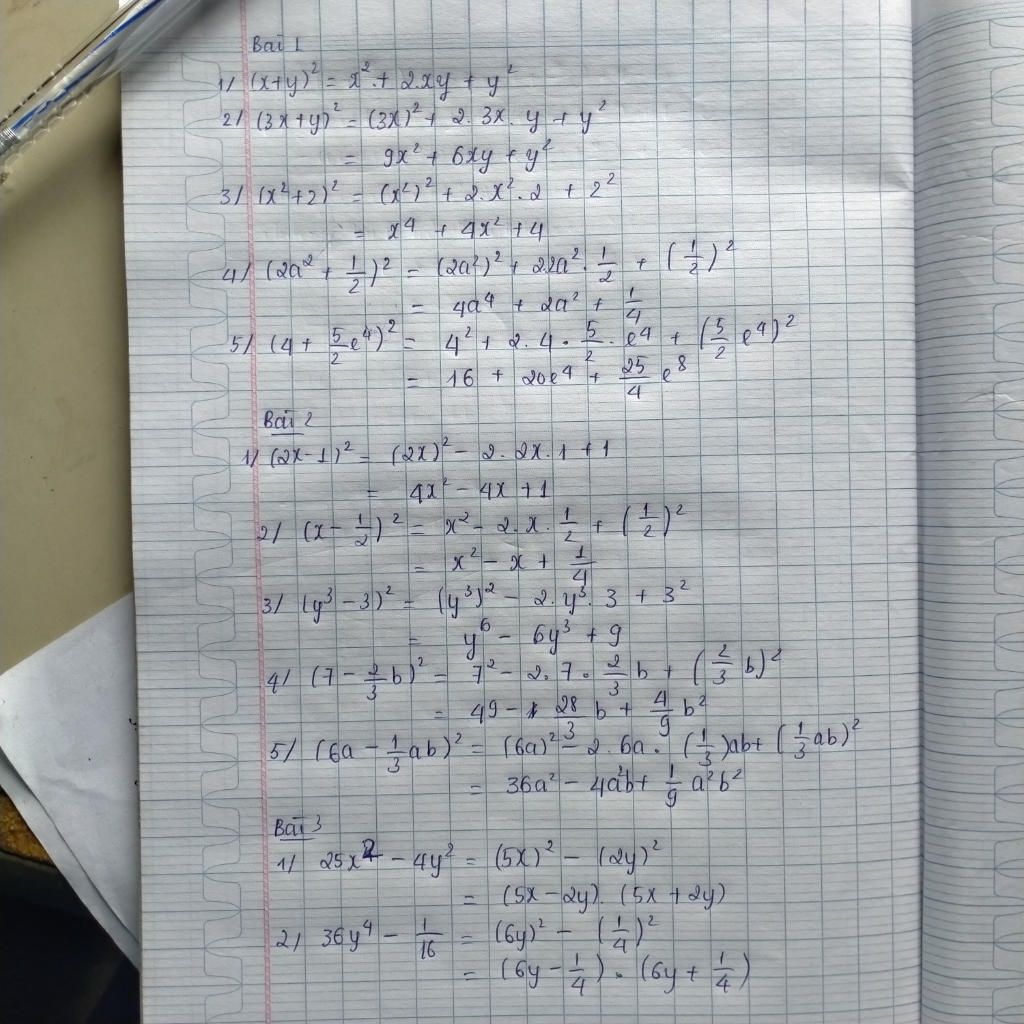 Bài 1
1) (x+y)² = x² + 2xy + y²
2) (3x+y)² = (3x)² + 2. 3x. y + y²
= 9x² + 6xy + y²
3) (x²+2)² = (x²)² + 2.x².2 + 2²
= x⁴ + 4x² + 4
4) (2a² + 1/2)² = (2a²)² + 2.2a². 1/2 + (1/2)²
= 4a⁴ + 2a² + 1/4
5) (4 + 5/2 e⁴)² = 4² + 2.4. 5/2 . e⁴ + (5/2 e⁴)²
= 16 + 20e⁴ + 25/4 e⁸
Bài 2
1) (2x-1)² = (2x)² - 2. 2x.1 + 1
= 4x² - 4x + 1
2) (x - 1/2)² = x² - 2.x. 1/2 + (1/2)²
= x² - x + 1/4
3) (y³ - 3)² = (y³)² - 2.y³.3 + 3²
= y⁶ - 6y³ + 9
4) (7 - 2/3 b)² = 7² - 2.7. 2/3 b + (2/3 b)²
= 49 - 28/3 b + 4/9 b²
5) (6a - 1/3 ab)² = (6a)² - 2.6a. (1/3)ab + (1/3 ab)²
= 36a² - 4a²b + 1/9 a²b²
Bài 3
1) 25x² - 4y² = (5x)² - (2y)²
= (5x-2y). (5x+2y)
2) 36y⁴ - 1/16 = (6y)² - (1/4)²
= (6y - 1/4) . (6y + 1/4)